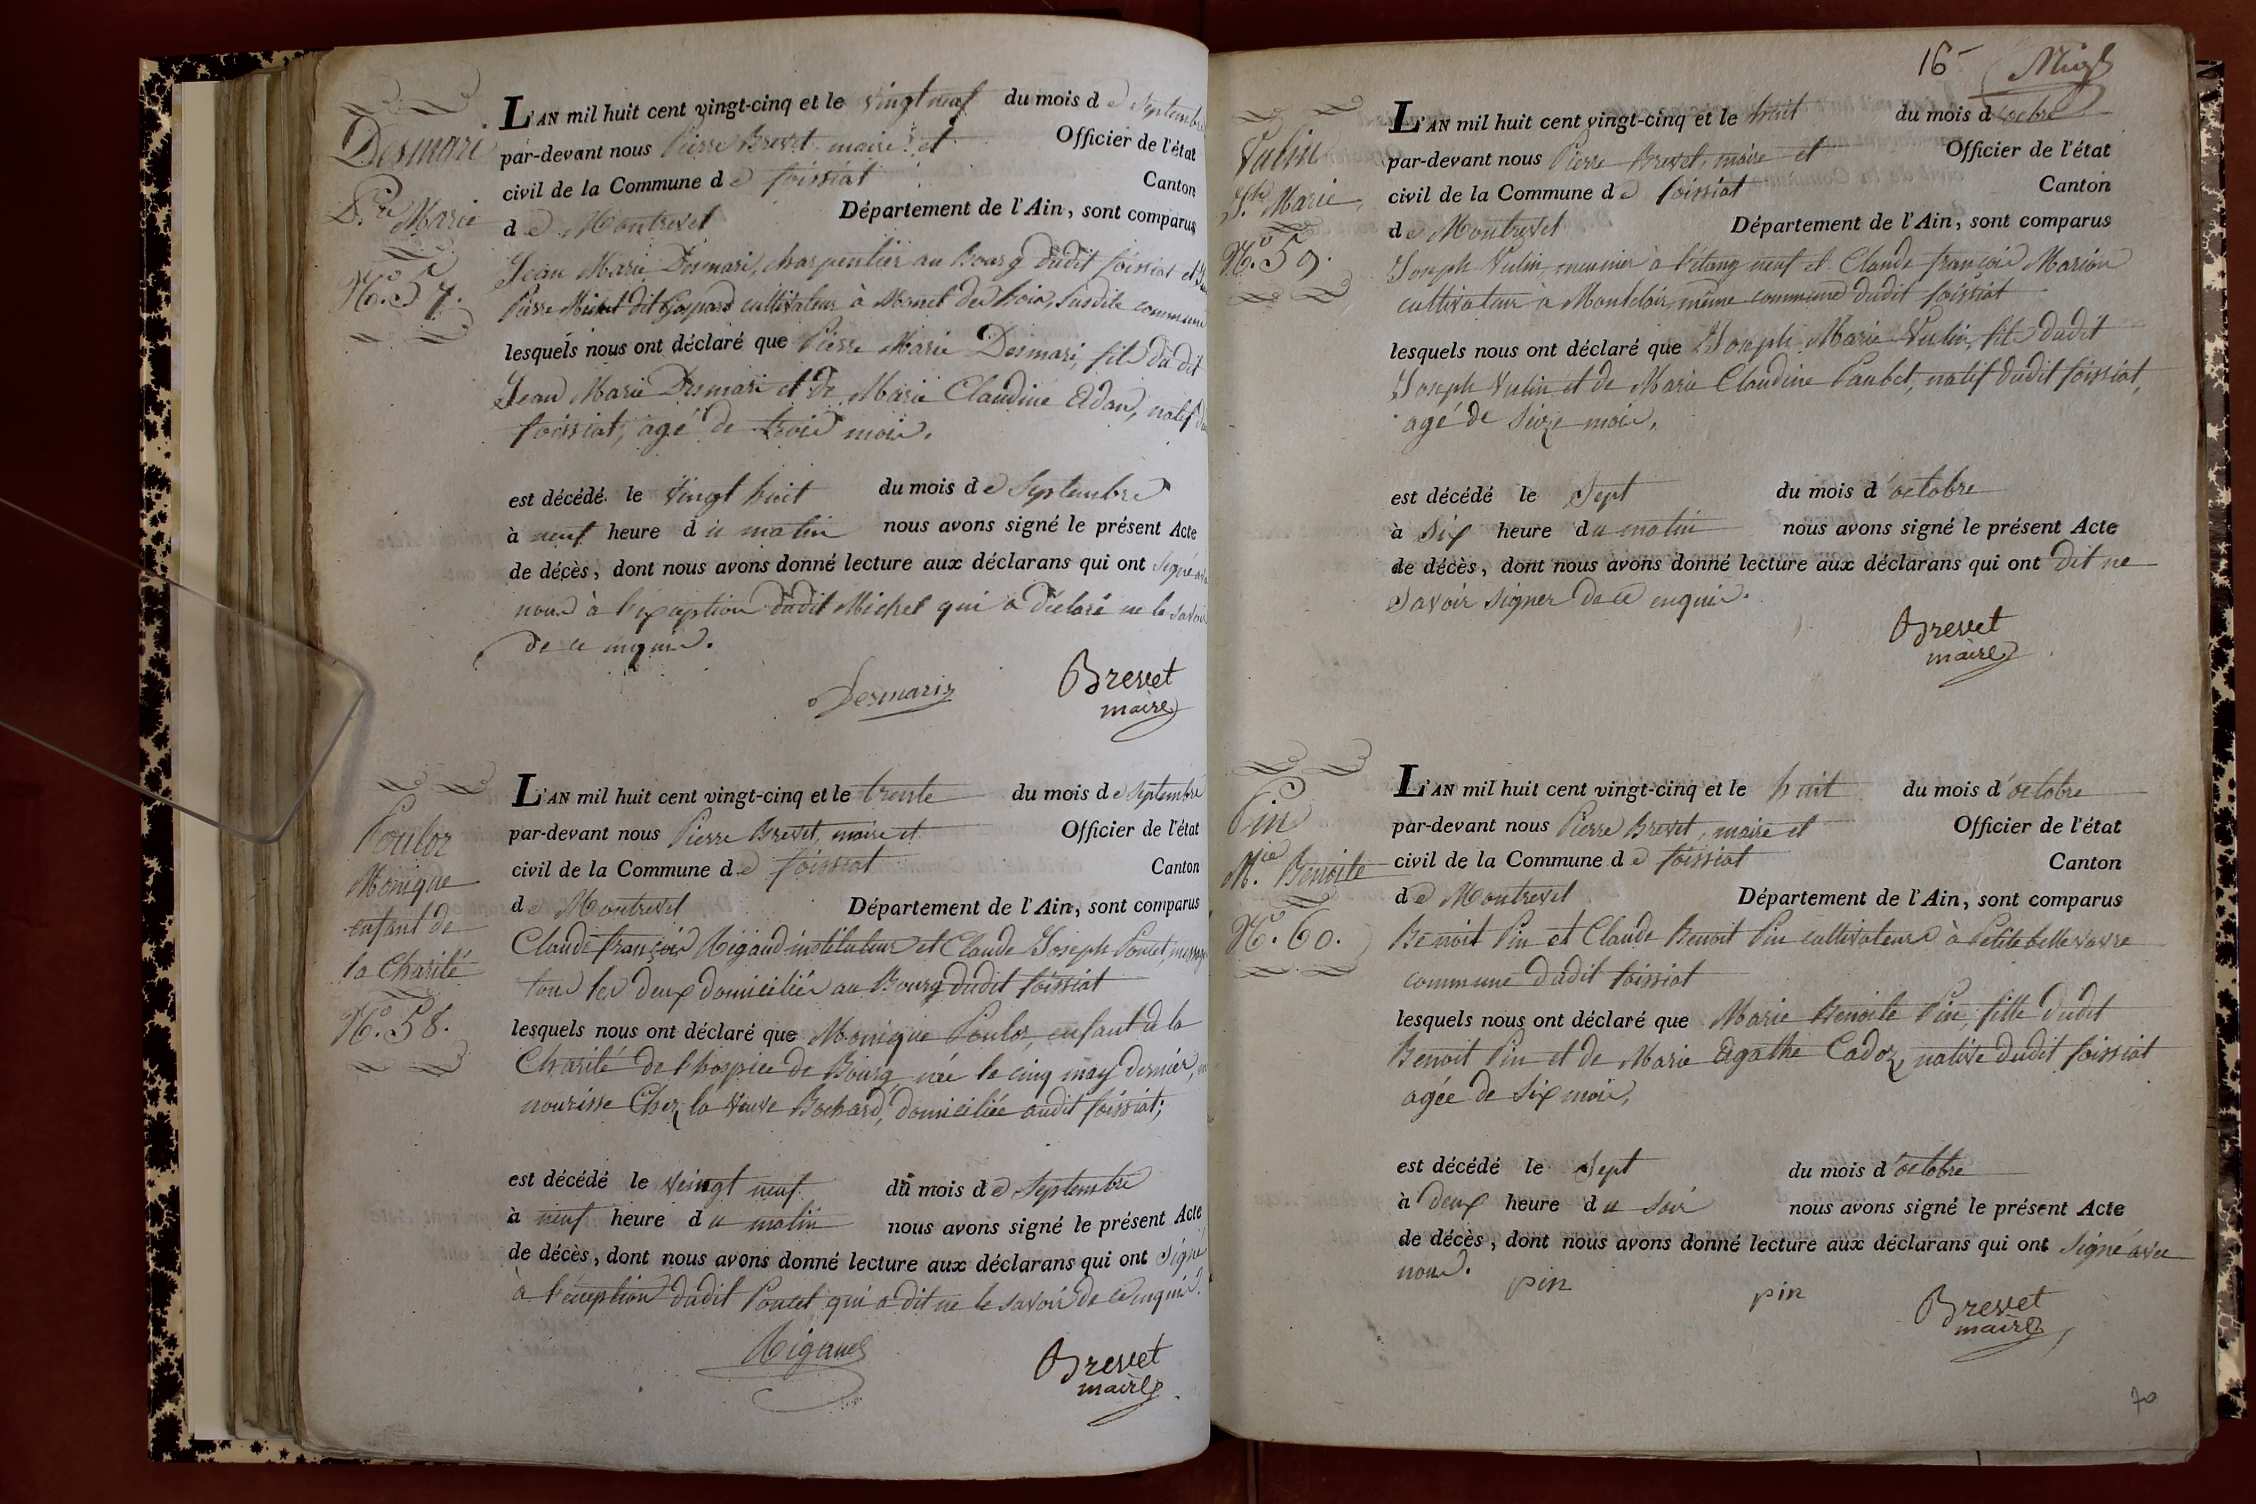 Desmari
P.re Marie
N.o 57.
L'AN mil huit cent vingt-cinq et le vingt neuf du mois de Septembre
par-devant nous Pierre Brevet, maire et Officier de l'état
civil de la Commune de foissiat Canton
de Montrevel Département de l'Ain, sont comparus
Jean Marie Desmari, charpentier au Bourg dudit foissiat et
Pierre Michel dit Gaspard cultivateur à Vernet des bois, susdite commune
lesquels nous ont déclaré que Pierre Marie Desmari, fils dudit
Jean Marie Desmari et de Marie Claudine Adam, natif du
foissiat, agé de trois mois.
est décédé le vingt huit du mois de Septembre
à neuf heure du matin nous avons signé le présent Acte
de décès, dont nous avons donné lecture aux déclarans qui ont Signé avec
nous à l'exception dudit Michel qui a déclaré ne le savoir
de ce enquis.
Desmaris
Brevet
maire
Poulor
Monique
enfant de
la Charité
N.o 58.
L'AN mil huit cent vingt-cinq et le trente du mois de Septembre
par-devant nous Pierre Brevet, maire et Officier de l'état
civil de la Commune de foissiat Canton
de Montrevel Département de l'Ain, sont comparus
Claude françois Rigaud instituteur et Claude Joseph Poncet,
tous les deux domiciliés au Bourg dudit foissiat
lesquels nous ont déclaré que Monique Poulor, enfant de la
Charité de l'hospice de Bourg née le cinq may dernier, en
nourisse Chez la veuve Bochard, domiciliée audit foissiat;
est décédé le veingt neuf du mois de Septembre
à neuf heure du matin nous avons signé le présent Acte
de décès, dont nous avons donné lecture aux déclarans qui ont Signé
à l'éxception dudit Poncet qui a dit ne le savoir de ce enquis.
Rigaud
Brevet
maire
16
L'AN mil huit cent vingt-cinq et le huit du mois d'octobre
Vulin
J.ph Marie
N.o 59.
par-devant nous Pierre Brevet, maire et Officier de l'état
civil de la Commune de foissiat Canton
de Montrevel Département de l'Ain, sont comparus
Joseph Vulin, meunier à l'étang neuf et Claude françois Marion
cultivateur à Montcloir, même commune dudit foissiat
lesquels nous ont déclaré que Joseph Marie Vulin, fils dudit
Joseph Vulin et de Marie Claudine Paubet, natif dudit foissiat,
agé de Seize mois,
est décédé le Sept du mois d'octobre
à Six heure du matin nous avons signé le présent Acte
de décès, dont nous avons donné lecture aux déclarans qui ont Dit ne
Savoir Signer de ce enquis.
Brevet
maire
Pin
M.ie Benoite
N.o 60.
L'AN mil huit cent vingt-cinq et le huit du mois d'octobre
par-devant nous Pierre Brevet, maire et Officier de l'état
civil de la Commune de foissiat Canton
de Montrevel Département de l'Ain, sont comparus
Benoit Pin et Claude Benoit Pin cultivateurs à Petite bellevavre
commune dudit foissiat
lesquels nous ont déclaré que Marie Benoite Pin, fille dudit
Benoit Pin et de Marie Agathe Cadoz, native dudit foissiat
agée de Six mois,
est décédé le Sept du mois d'octobre
à deux heure du Soir nous avons signé le présent Acte
de décès, dont nous avons donné lecture aux déclarans qui ont Signé avec
nous.
pin pin
Brevet
maire
70